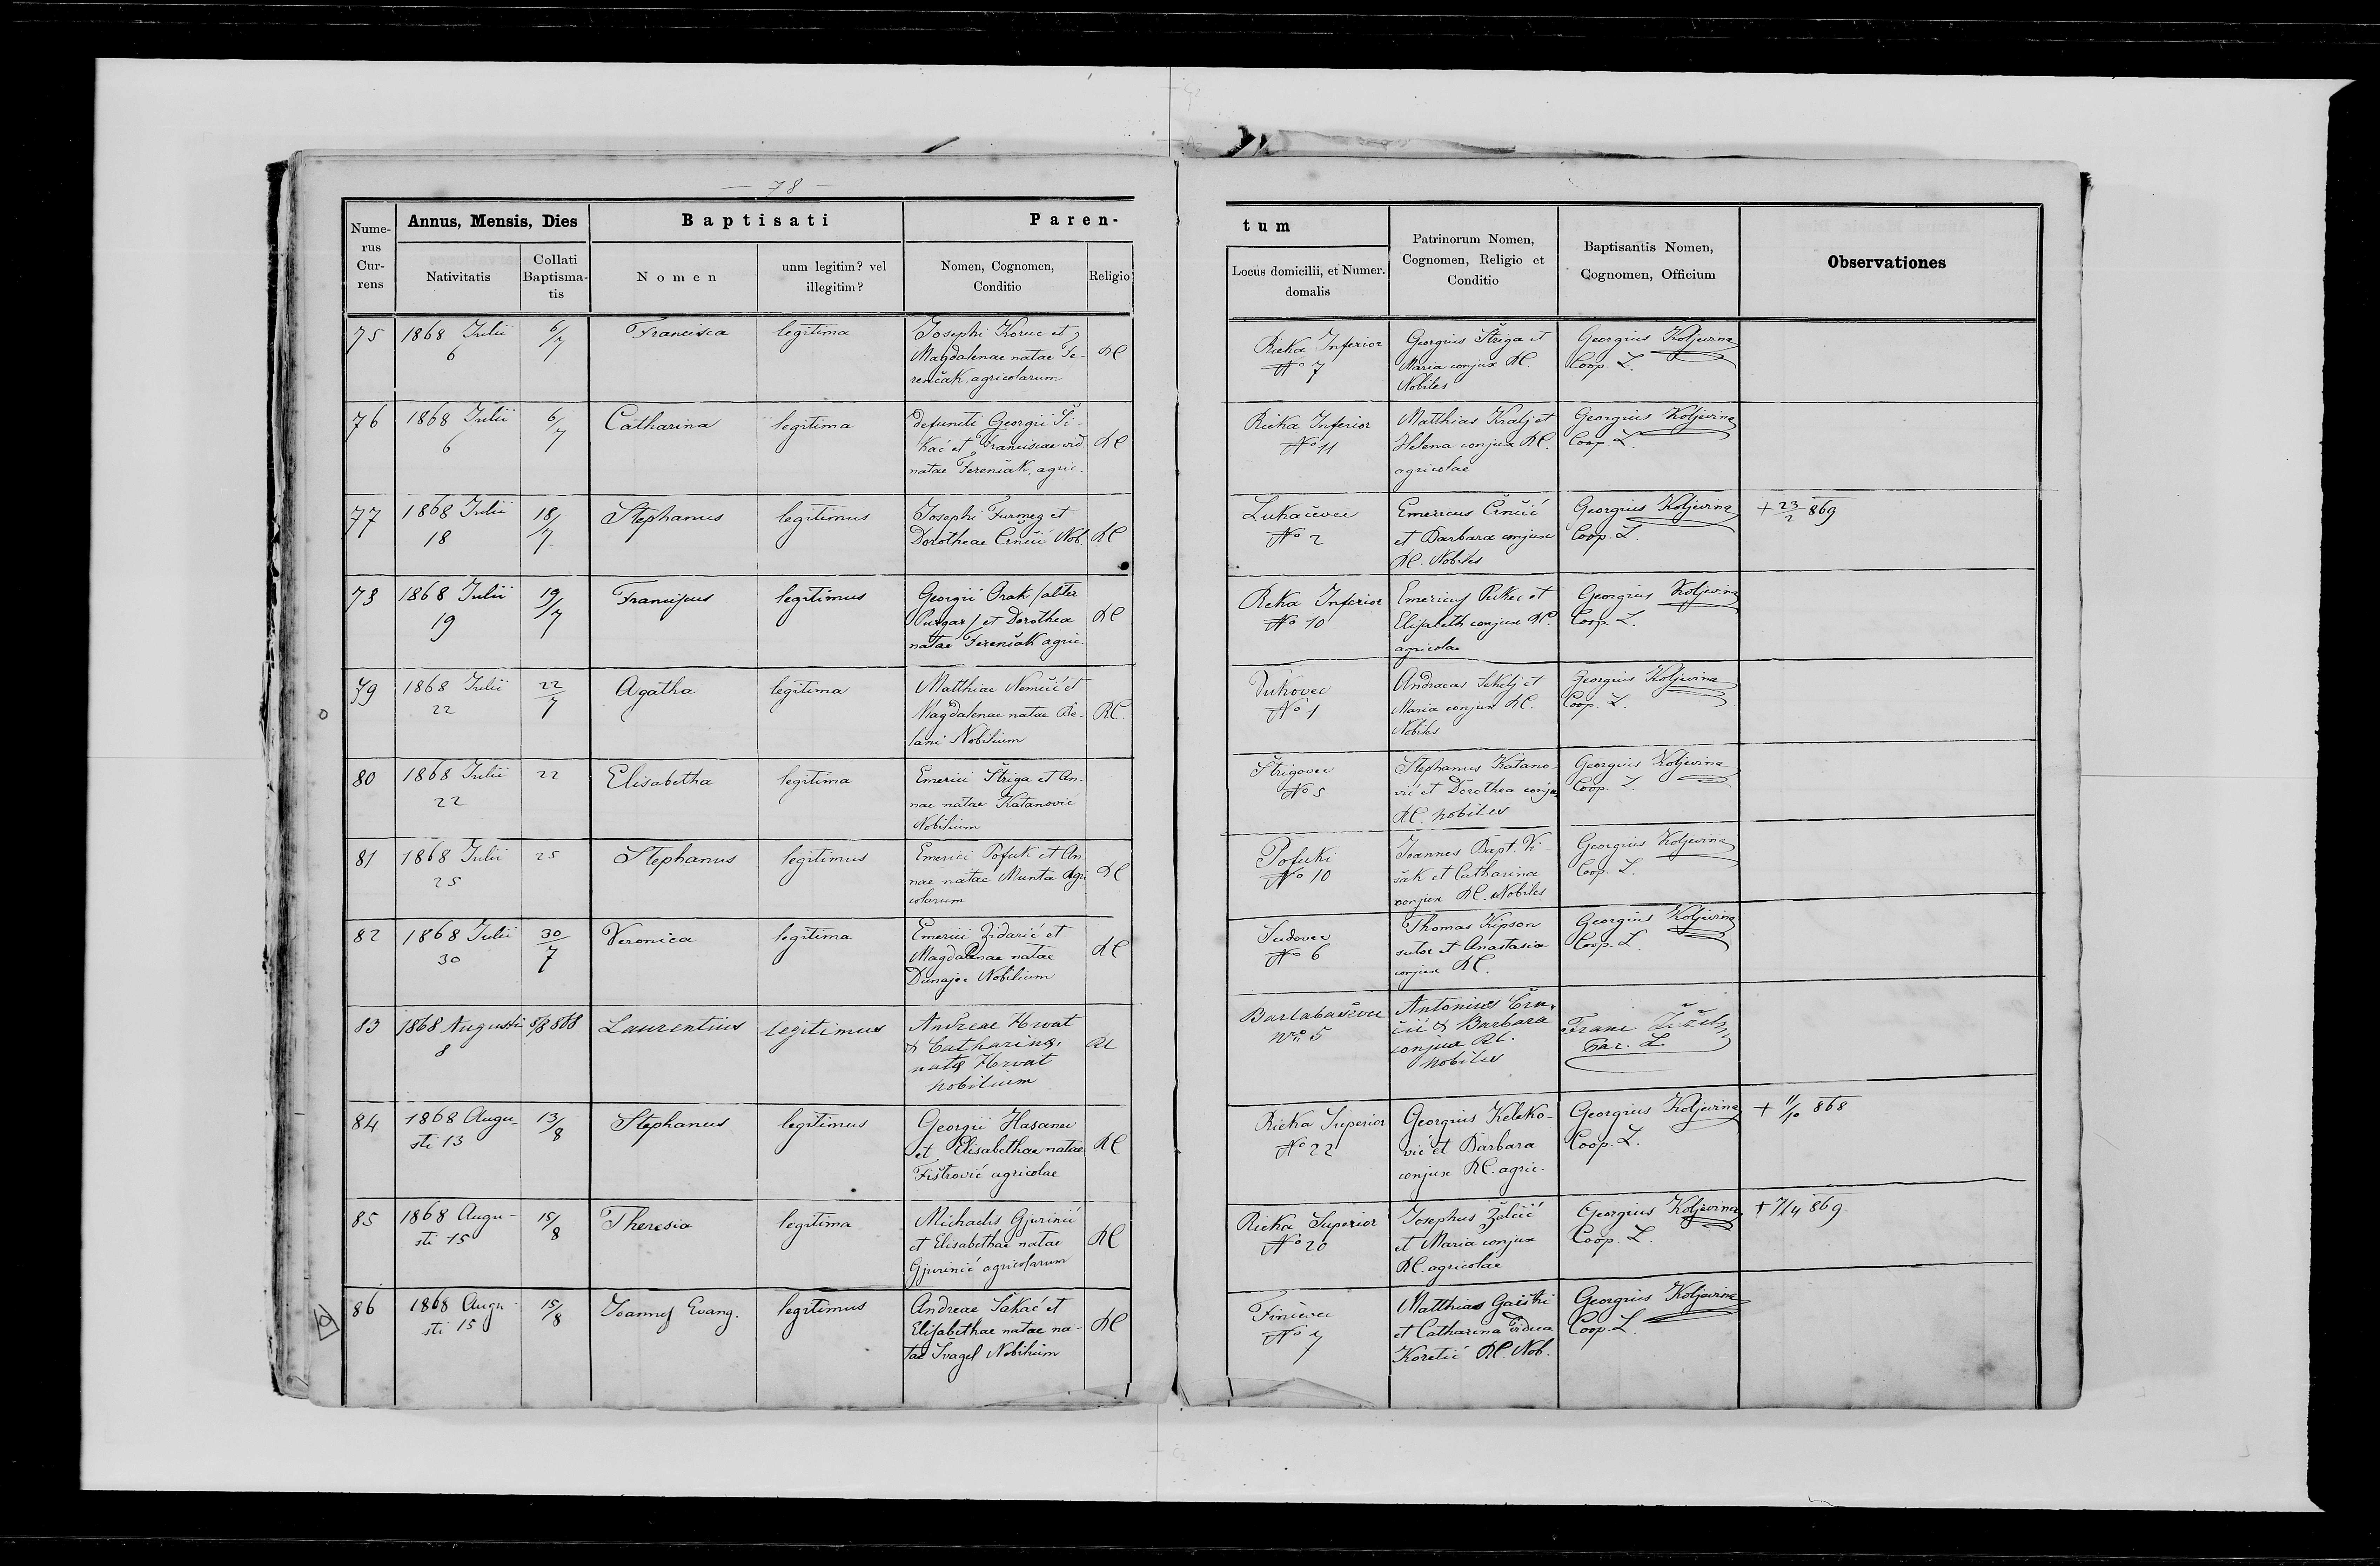 — 78 —
Nume-
rus
Cur-
rens
Annus, Mensis, Dies
Nativitatis
Collati
Baptisma-
tis
Baptisati
Nomen
unm legitim? vel
illegitim?
Paren-
Nomen, Cognomen,
Conditio
Religio
tum
Locus domicilii, et Numer.
domalis
Patrinorum Nomen,
Cognomen, Religio et
Conditio
Baptisantis Nomen,
Cognomen, Officium
Observationes
75
1868 Julii
6
6/7
Francisca
legitima
Josephi Koruc et
Magdalenae natae Fe-
renčak, agricolarum
RC
Rieka Inferior
No 7
Georgius Štriga et
Maria conjux RC.
Nobiles
Georgius Koljevina
Coop. L.
76
1868 Julii
6
6/7
Catharina
legitima
defuncti Georgii Ši-
kać et Franciscae vid.
natae Ferenčak, agric.
RC
Rieka Inferior
No 11
Matthias Kralj et
Helena conjux RC.
agricolae
Georgius Koljevina
Coop. L.
77
1868 Julii
18
18/7
Stephanus
legitimus
Josephi Furmeg et
Dorotheae Črnčić Nob.
RC
Lukačevec
No 2
Emericus Črnčić
et Barbara conjux
RC. Nobiles
Georgius Koljevina
Coop. L.
+ 23/2 869
78
1868 Julii
19
19/7
Franciscus
legitimus
Georgii Orak /aliter
Purgar/ et Dorothea
natae Ferenčak agric.
RC
Reka Inferior
No 10
Emericus Pukec et
Elisabeth conjux RC.
agricolae
Georgius Koljevina
Coop. L.
79
1868 Julii
22
22/7
Agatha
legitima
Matthiae Nemčić et
Magdalenae natae Be-
lani Nobilium
RC.
Vukovec
No 1
Andraeas Sekelj et
Maria conjux RC.
Nobiles
Georgius Koljevina
Coop. L.
80
1868 Julii
22
22
Elisabetha
legitima
Emerici Štriga et An-
nae natae Katanović
Nobilium
Štrigovec
No 5
Stephanus Katano-
vić et Dorothea conjux
RC. nobiles
Georgius Koljevina
Coop. L.
81
1868 Julii
25
25
Stephanus
legitimus
Emerici Pofuk et An-
nae natae Munta Agri-
colarum
RC
Pofuki
No 10
Joannes Bapt. Vi-
šak et Catharina
conjux RC. Nobiles
Georgius Koljevina
Coop. L.
82
1868 Julii
30
30/7
Veronica
legitima
Emerici Zidarić et
Magdalenae natae
Dunajec Nobilium
RC
Sudovec
No 6
Thomas Kipson
sutor et Anastasia
conjux RC.
Georgius Koljevina
Coop. L.
83
1868 Augusti
8
8/8 868
Laurentius
legitimus
Andreae Horvat
& Catharina,
nata Horvat
nobilium
RC
Barlabaševec
Nro 5
Antonius Črn-
čić & Barbara
conjux RC.
nobiles
Franc.
Par. L.
84
1868 Augu-
sti 13
13/8
Stephanus
legitimus
Georgii Hasanec
et Elisabethae natae
Fištrović agricolae
RC
Rieka Superior
No 22
Georgius Keleko-
vić et Barbara
conjux RC. agric.
Georgius Koljevina
Coop. L.
+ 11/10 868
85
1868 Augu-
sti 15
15/8
Theresia
legitima
Michaelis Gjurinić
et Elisabethae natae
Gjurinić agricolarum
RC
Rieka Superior
No 20
Josephus Želčić
et Maria conjux
RC. agricolae
Georgius Koljevina
Coop. L.
+ 7/4 869
86
1868 Augu-
sti 15
15/8
Joannes Evang.
legitimus
Andreae Šakać et
Elisabethae natae na-
tae Švagel Nobilium
RC
Finčevec
No 7
Matthias Gaiški
et Catharina vidua
Koretić RC. Nob.
Georgius Koljevina
Coop. L.